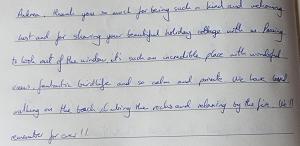 Andrea, thank you so much for being such a kind and welcoming
host and for sharing your beautiful holiday cottage with us
to look out of the window, it's such an incredible place with wonderful
views, fantastic birdlife and so calm and private. We have loved
walking on the beach, climbing the rocks and relaxing by the fire. We'll
remember for ever!!